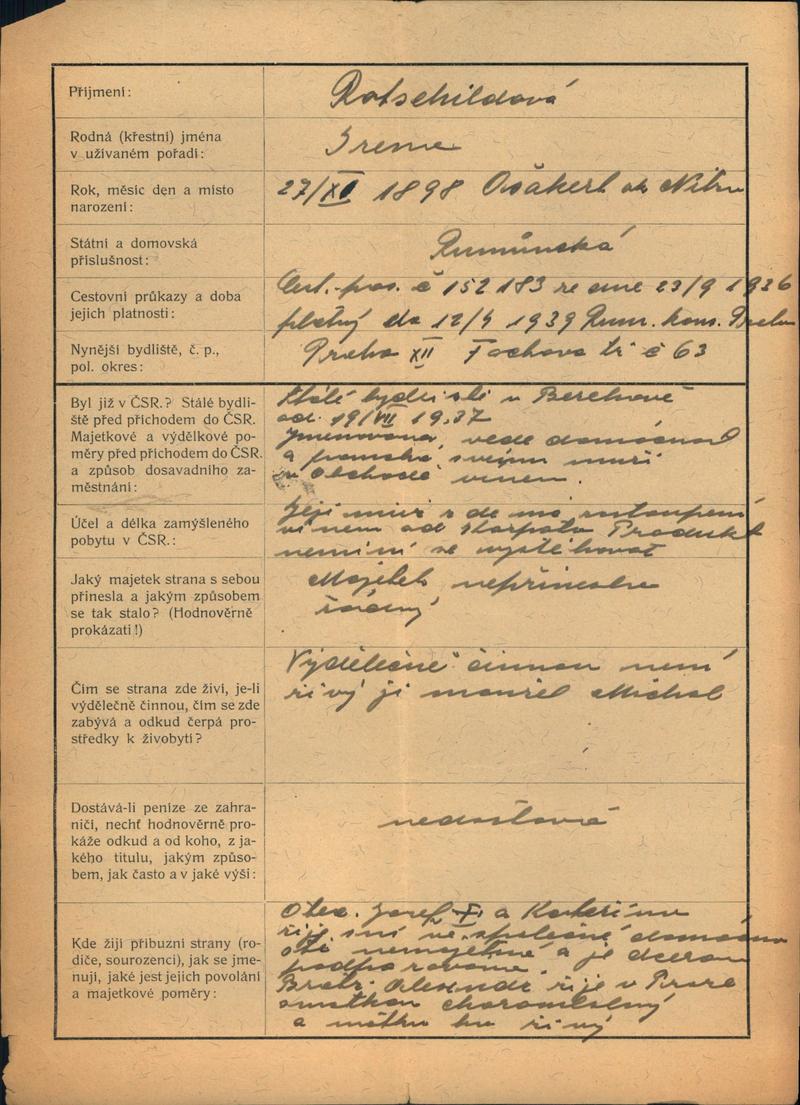 Příjmení: Rotschildová
Rodná (křestní) jména
v užívaném pořadí: Irene
Rok, měsíc den a místo
narození: 27/XI 1898 Nitra
Státní a domovská
příslušnost: Rumunská
Cestovní průkazy a doba
jejich platnosti: Cest. pas. č 152183 ze dne 23/9 1936
platný do 12/4 1939 Rum. kons. Praha
Nynější bydliště, č. p.,
pol. okres: Praha XII Fochova tř č 63
Byl již v ČSR.? Stálé bydli-
ště před příchodem do ČSR.
Majetkové a výdělkové po-
měry před příchodem do ČSR.
a způsob dosavadního za-
městnání:
Stálé bydliště v Berehově
od. 19/VII 1937
Jmenovaná vede domácnost
a pomáhá svému muži
v Obchodě vínem.
Účel a délka zamýšleného
pobytu v ČSR.:
Její muž zde má zastoupení
vínem od
nemíní se vystěhovat
Jaký majetek strana s sebou
přinesla a jakým způsobem
se tak stalo? (Hodnověrně
prokázati!)
Majetek nepřinesla
žádný
Čím se strana zde živí, je-li
výdělečně činnou, čím se zde
zabývá a odkud čerpá pro-
středky k živobytí?
Výdělečně činnou není
živý ji manžel Michal
Dostává-li peníze ze zahra-
ničí, nechť hodnověrně pro-
káže odkud a od koho, z ja-
kého titulu, jakým způso-
bem, jak často a v jaké výši:
nedostává
Kde žijí příbuzní strany (ro-
diče, sourozenci), jak se jme-
nují, jaké jest jejich povolání
a majetkové poměry:
Otec. Josef a Kateřina
žijí s ní ve společné domácno
sti nemajetné a je dcerou
podporováni.
Bratr. Alexandr žije v Praze
a matku
a živý